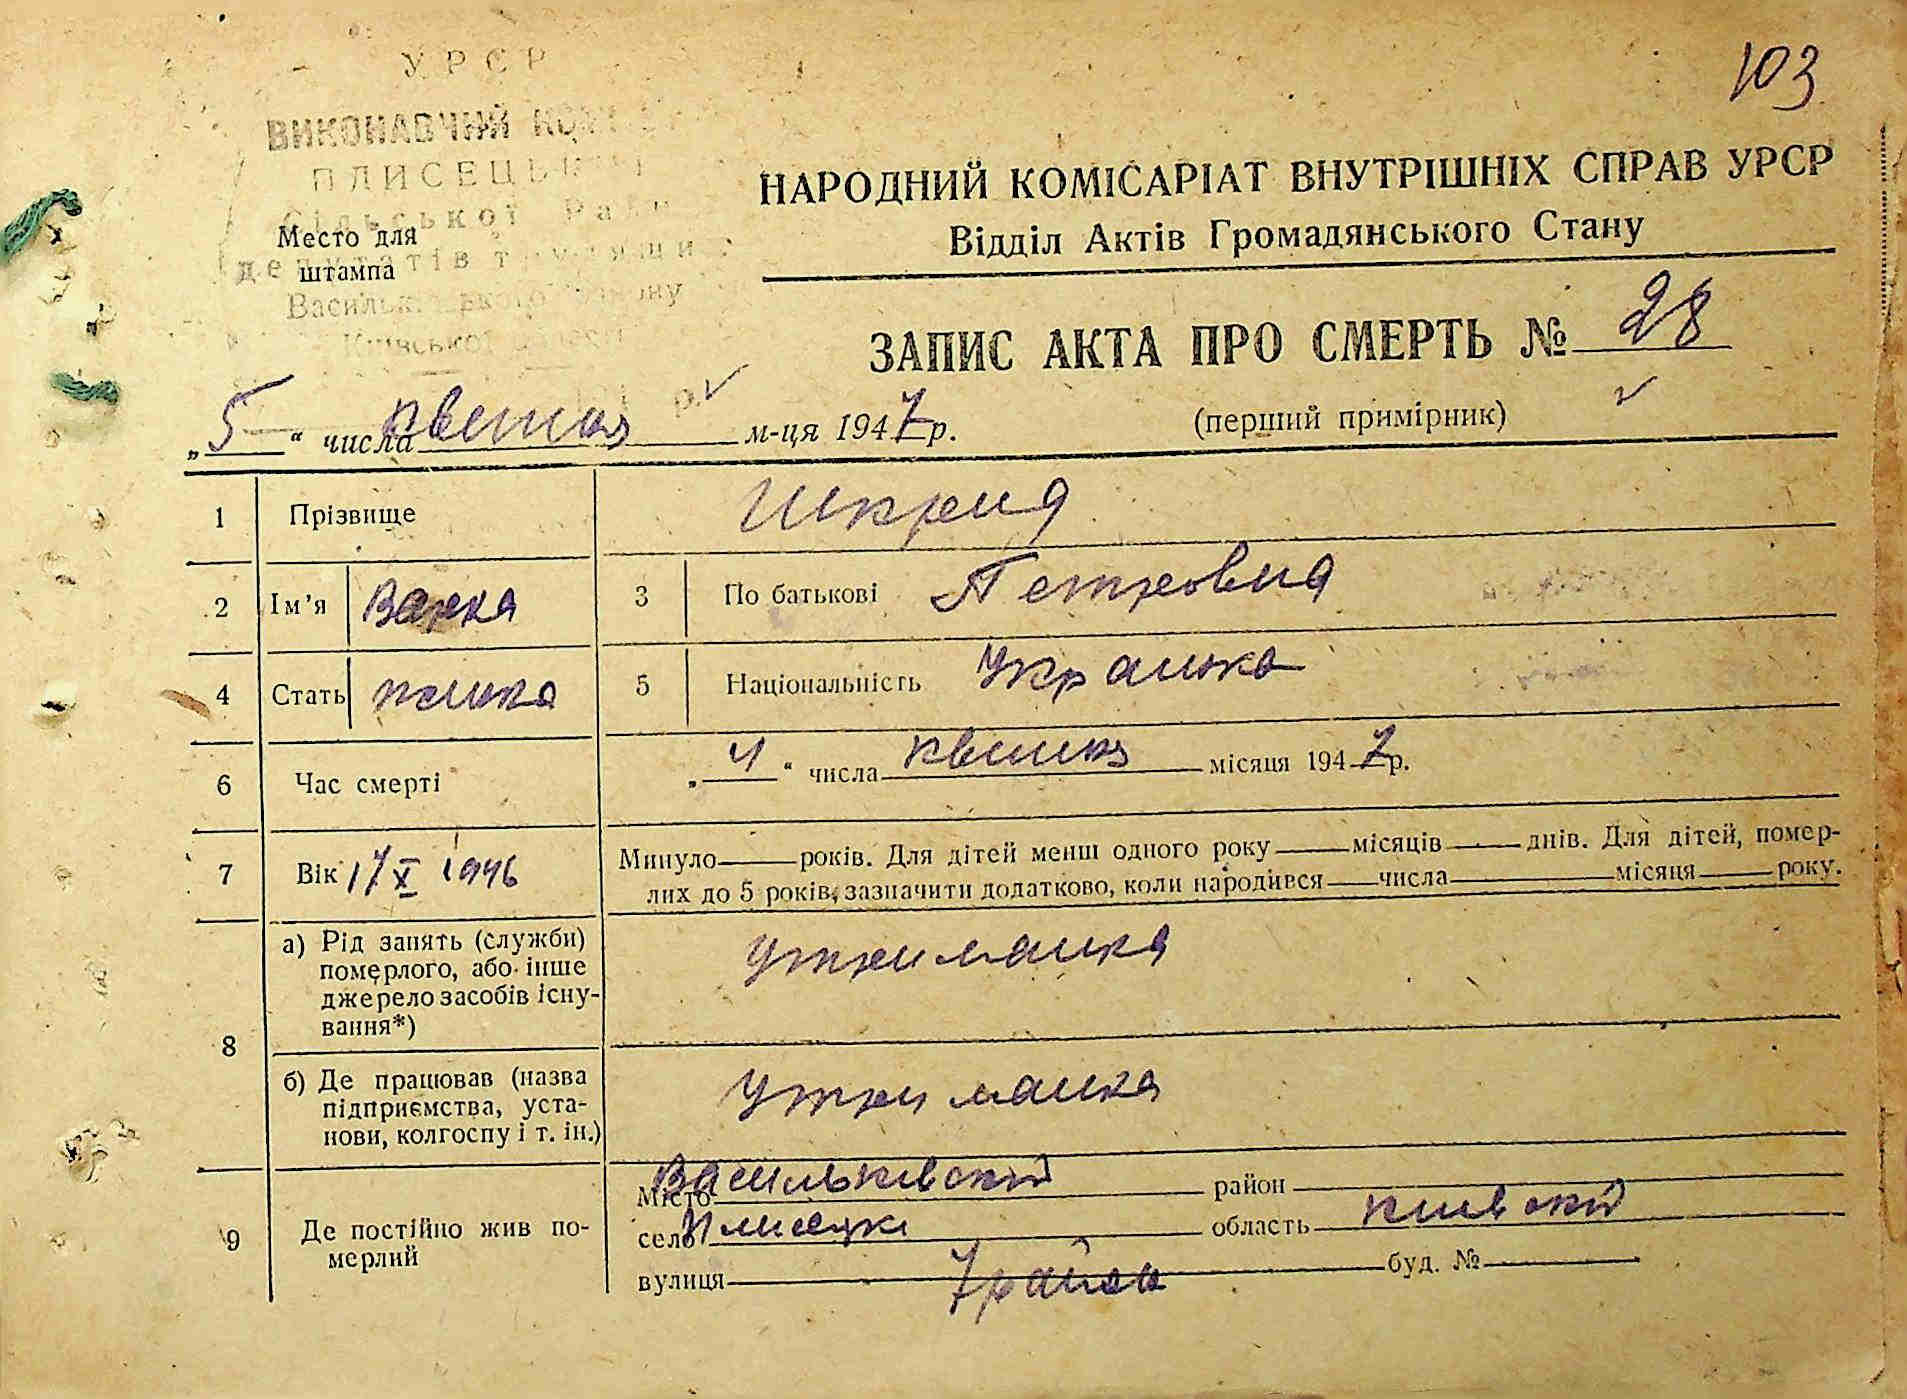 103
УРСР
ВИКОНАВЧИЙ
ПЛИСЕЦЬКОЇ
Сільської Ради
депутатів трудящих
Васильківського району
Київської області
Место для
штампа
НАРОДНИЙ КОМІСАРІАТ ВНУТРІШНІХ СПРАВ УРСР
Відділ Актів Громадянського Стану
ЗАПИС АКТА ПРО СМЕРТЬ № 28
„5“ числа квитня м-ця 1947 р.
(перший примірник)
1 Прізвище Шкрид
2 Ім’я Варка 3 По батькові Петровна
4 Стать жинка 5 Національність Українка
6 Час смерті „4“ числа квитня місяця 1947 р.
7 Вік 17 X 1946 Минуло рокiв. Для дітей менш одного року місяців днів. Для дітей, помер-
лих до 5 років, зазначити додатково, коли народився числа місяця року.
8 а) Рід занять (служби)
померлого, або інше
джерело засобів існу-
вання*)
утриманка
б) Де працював (назва
підприємства, уста-
нови, колгоспу і т. ін.)
утриманка
9 Де постійно жив по-
мерлий
Місто Васильківский район
село Плисецке область киевский
вулиця буд. №